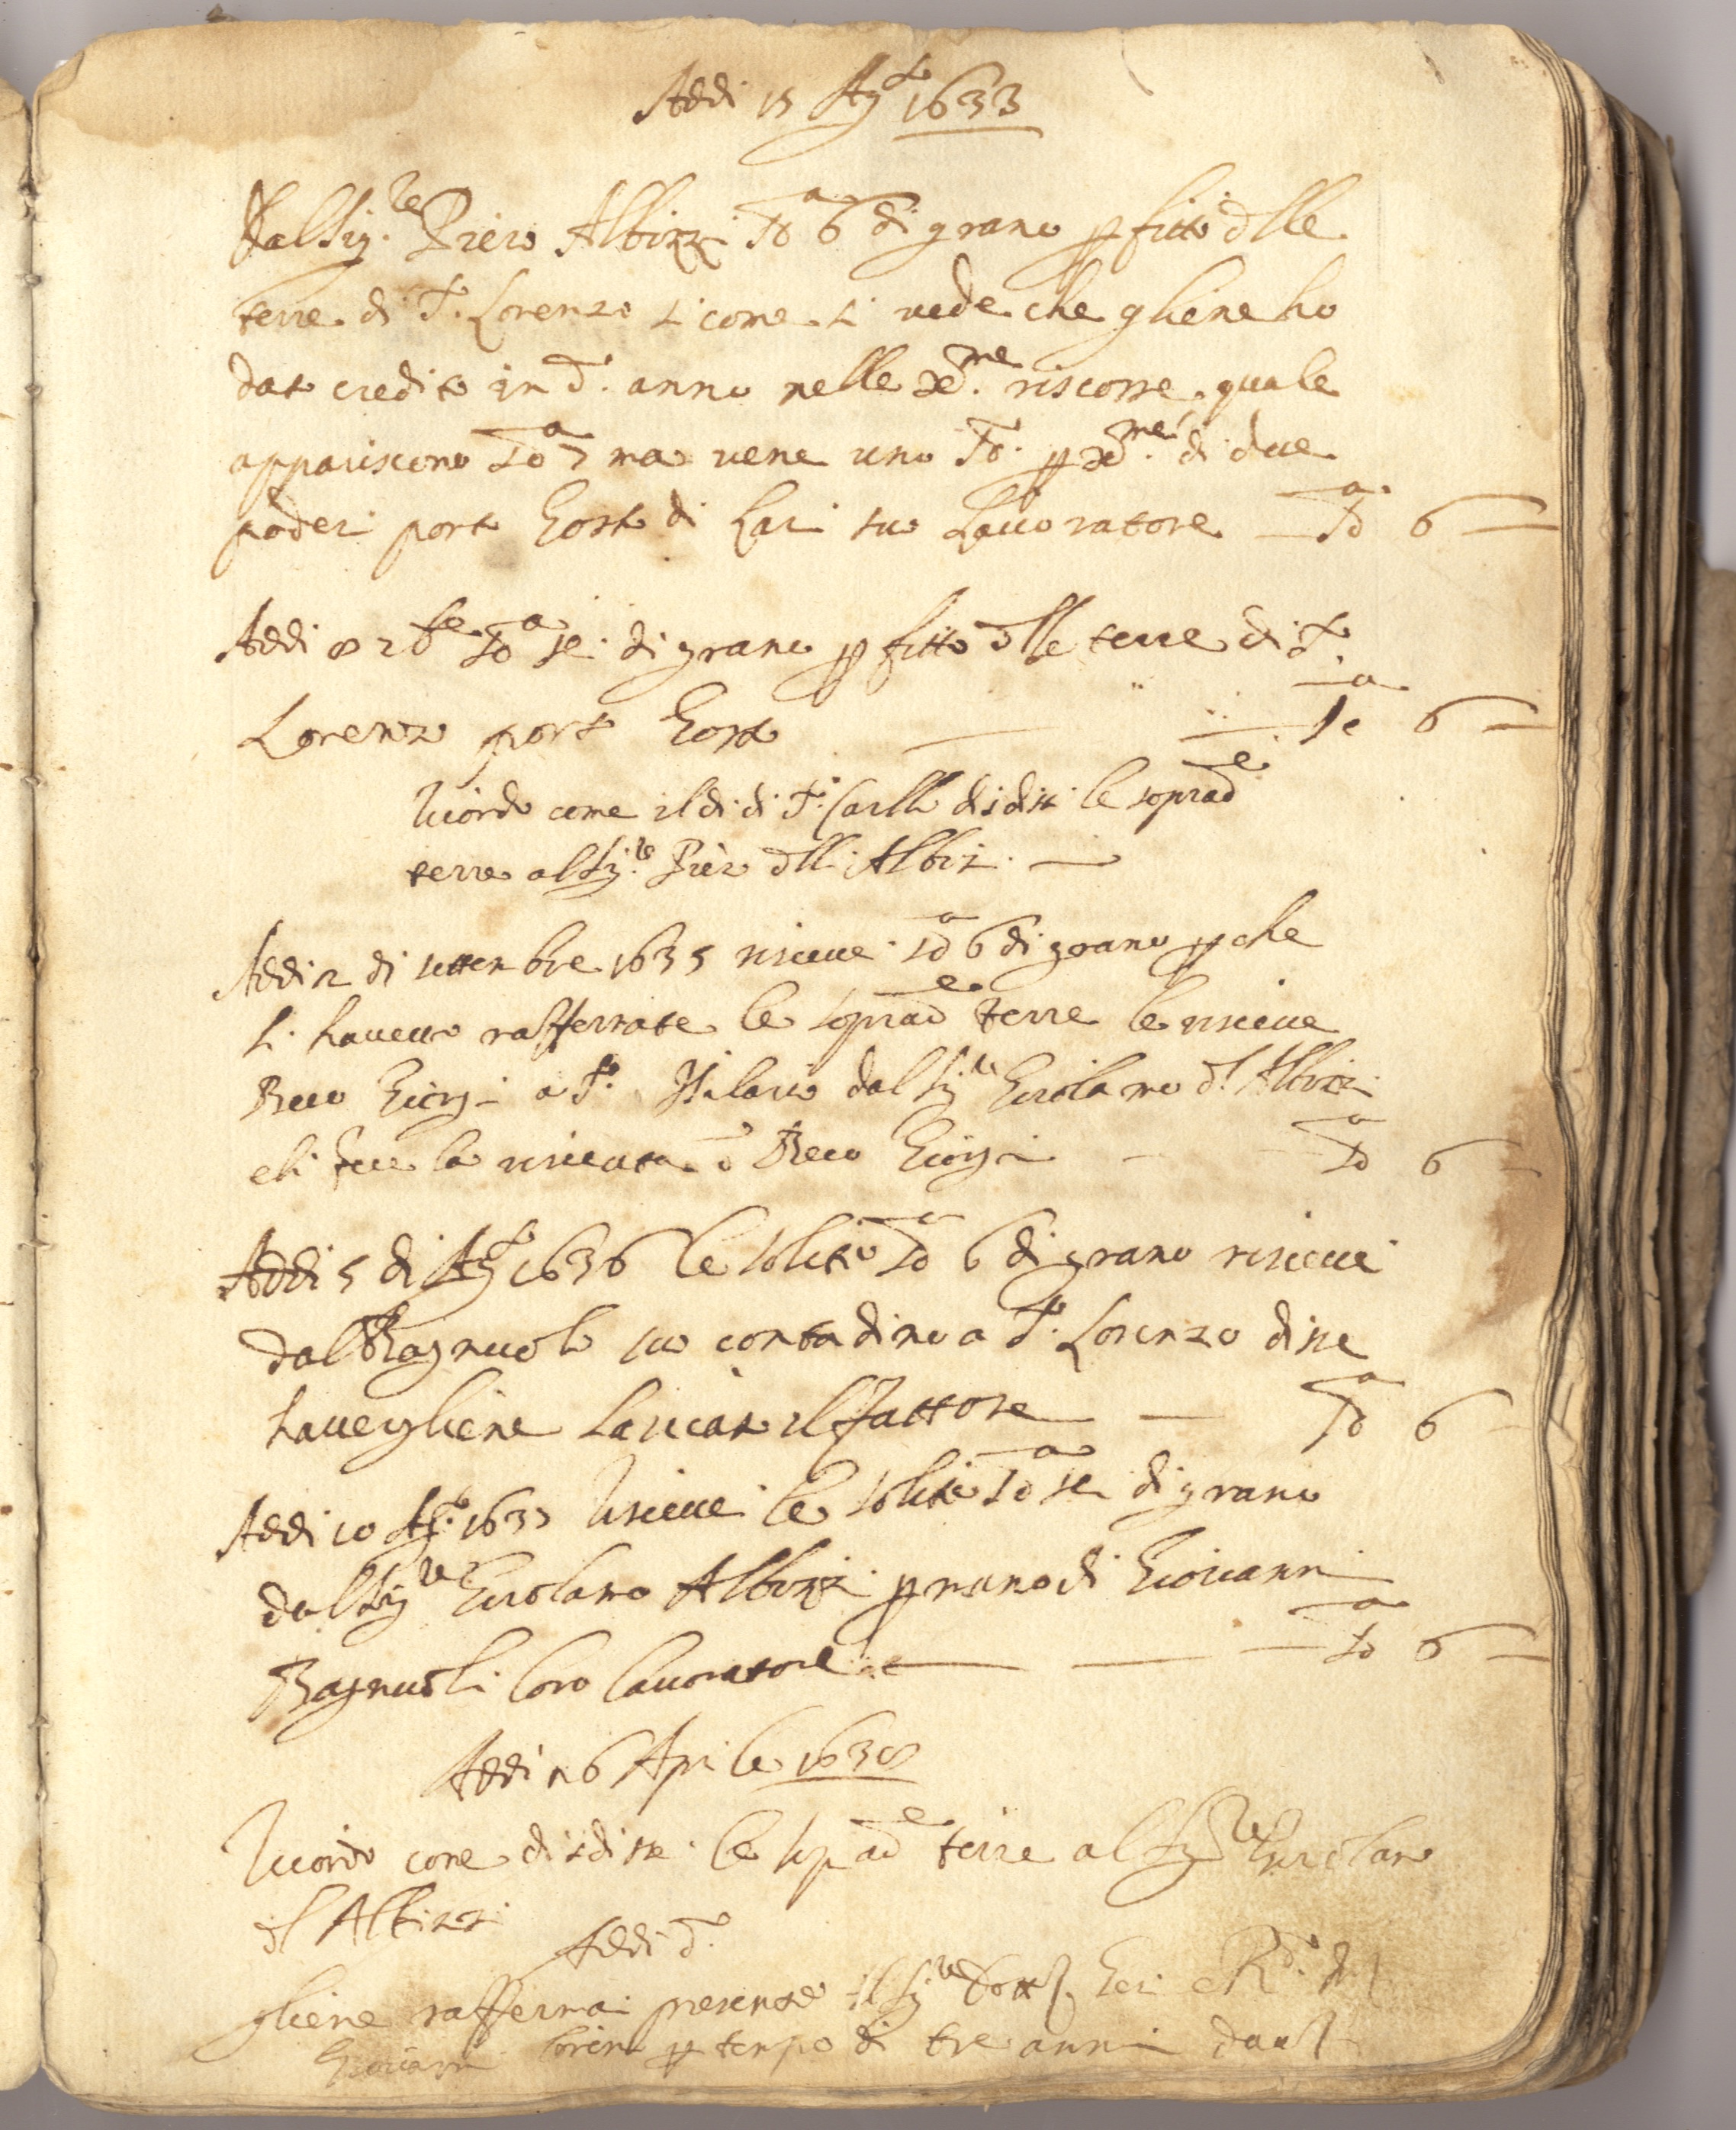 Addi 15 Agto 1633
Dal Sig.re Piero Albizzi sa 6 di grano p fitto dlle
terre di S.to Lorenzo si come si vede che gliene ho
dato credito in d.o anno nelle Xme riscosse quale
appariscono sa 7 ma vene uno so. p Xme di due
poderi porto di Lari suo Lavoratore sa 6
Addi 8 7bre sa sei di grano p fitto dlle terre di S.to
Lorenzo porto sa 6
Ricordo come il di di S.to disdissi le soprade
terre al Sig.re Piero dlli Albizi
Addi 12 di settembre 1635 riceve sa 6 di grano p che
si havevo raffermate le soprade terre le riceve
Beco Giorgi a S.to Hilario dal Sig.re Girolamo dl Albizzi
e li fece la ricevuta d.o Beco Giorgi sa 6
Addi 5 di Agto 1636 le solite sa 6 di grano ricevei
dal Bagnuolo suo contadino a S.to Lorenzo disse
havergliene il fattore sa 6
Addi 10 Ag.to 1637 Ricevei le solite sa sei di grano
dal Sig.re Girolamo Albizzi p mano di Giovanni
Bagnuoli loro lavoratore sa 6
Addi 26 Aprile 1638
Ricordo come disdissi le soprade terre al Sig.re Girolamo
dl Albizzi
Addi d.o
gliene raffermai presente il Sig.re
Giovanni p tempo di tre anni